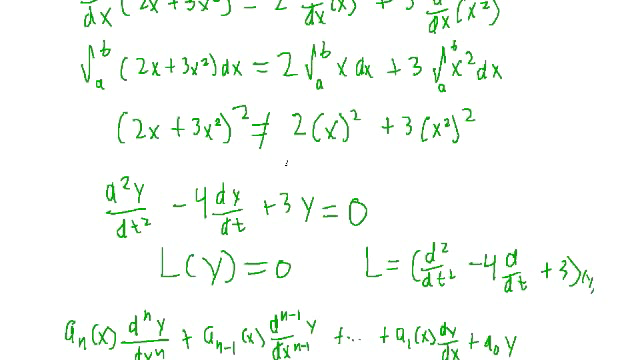 d/dx (2x + 3x²) = 2 d/dx (x) + 3 d/dx (x²)
∫ₐᵇ (2x + 3x²) dx = 2 ∫ₐᵇ x dx + 3 ∫ₐᵇ x² dx
(2x + 3x²)² ≠ 2(x)² + 3(x²)²
d²y/dt² - 4 dy/dt + 3y = 0
L(y) = 0 L = (d²/dt² - 4 d/dt + 3)(y)
aₙ(x) dⁿy/dxⁿ + aₙ₋₁(x) dⁿ⁻¹y/dxⁿ⁻¹ + ... + a₁(x) dy/dx + a₀ y